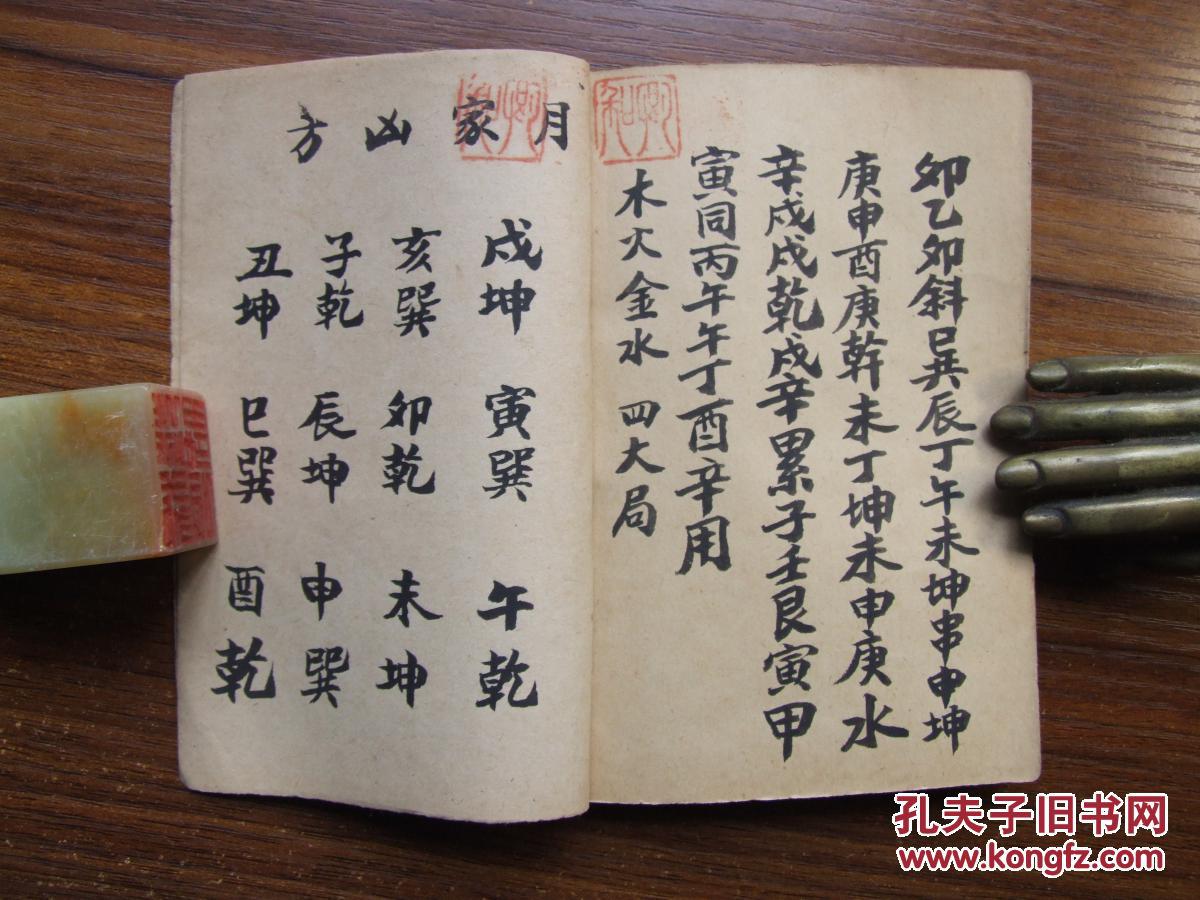 卯乙卯斜巳巽辰丁午未坤串申坤
庚申酉庚幹未丁坤未申庚水
辛戌戌乾戌辛累子壬艮寅甲
寅同丙午午丁酉辛用
木火金水 四大局
月家凶方
戌坤 寅巽 午乾
亥巽 卯乾 未坤
子乾 辰坤 申巽
丑坤 巳巽 酉乾
孔夫子旧书网
www.kongfz.com